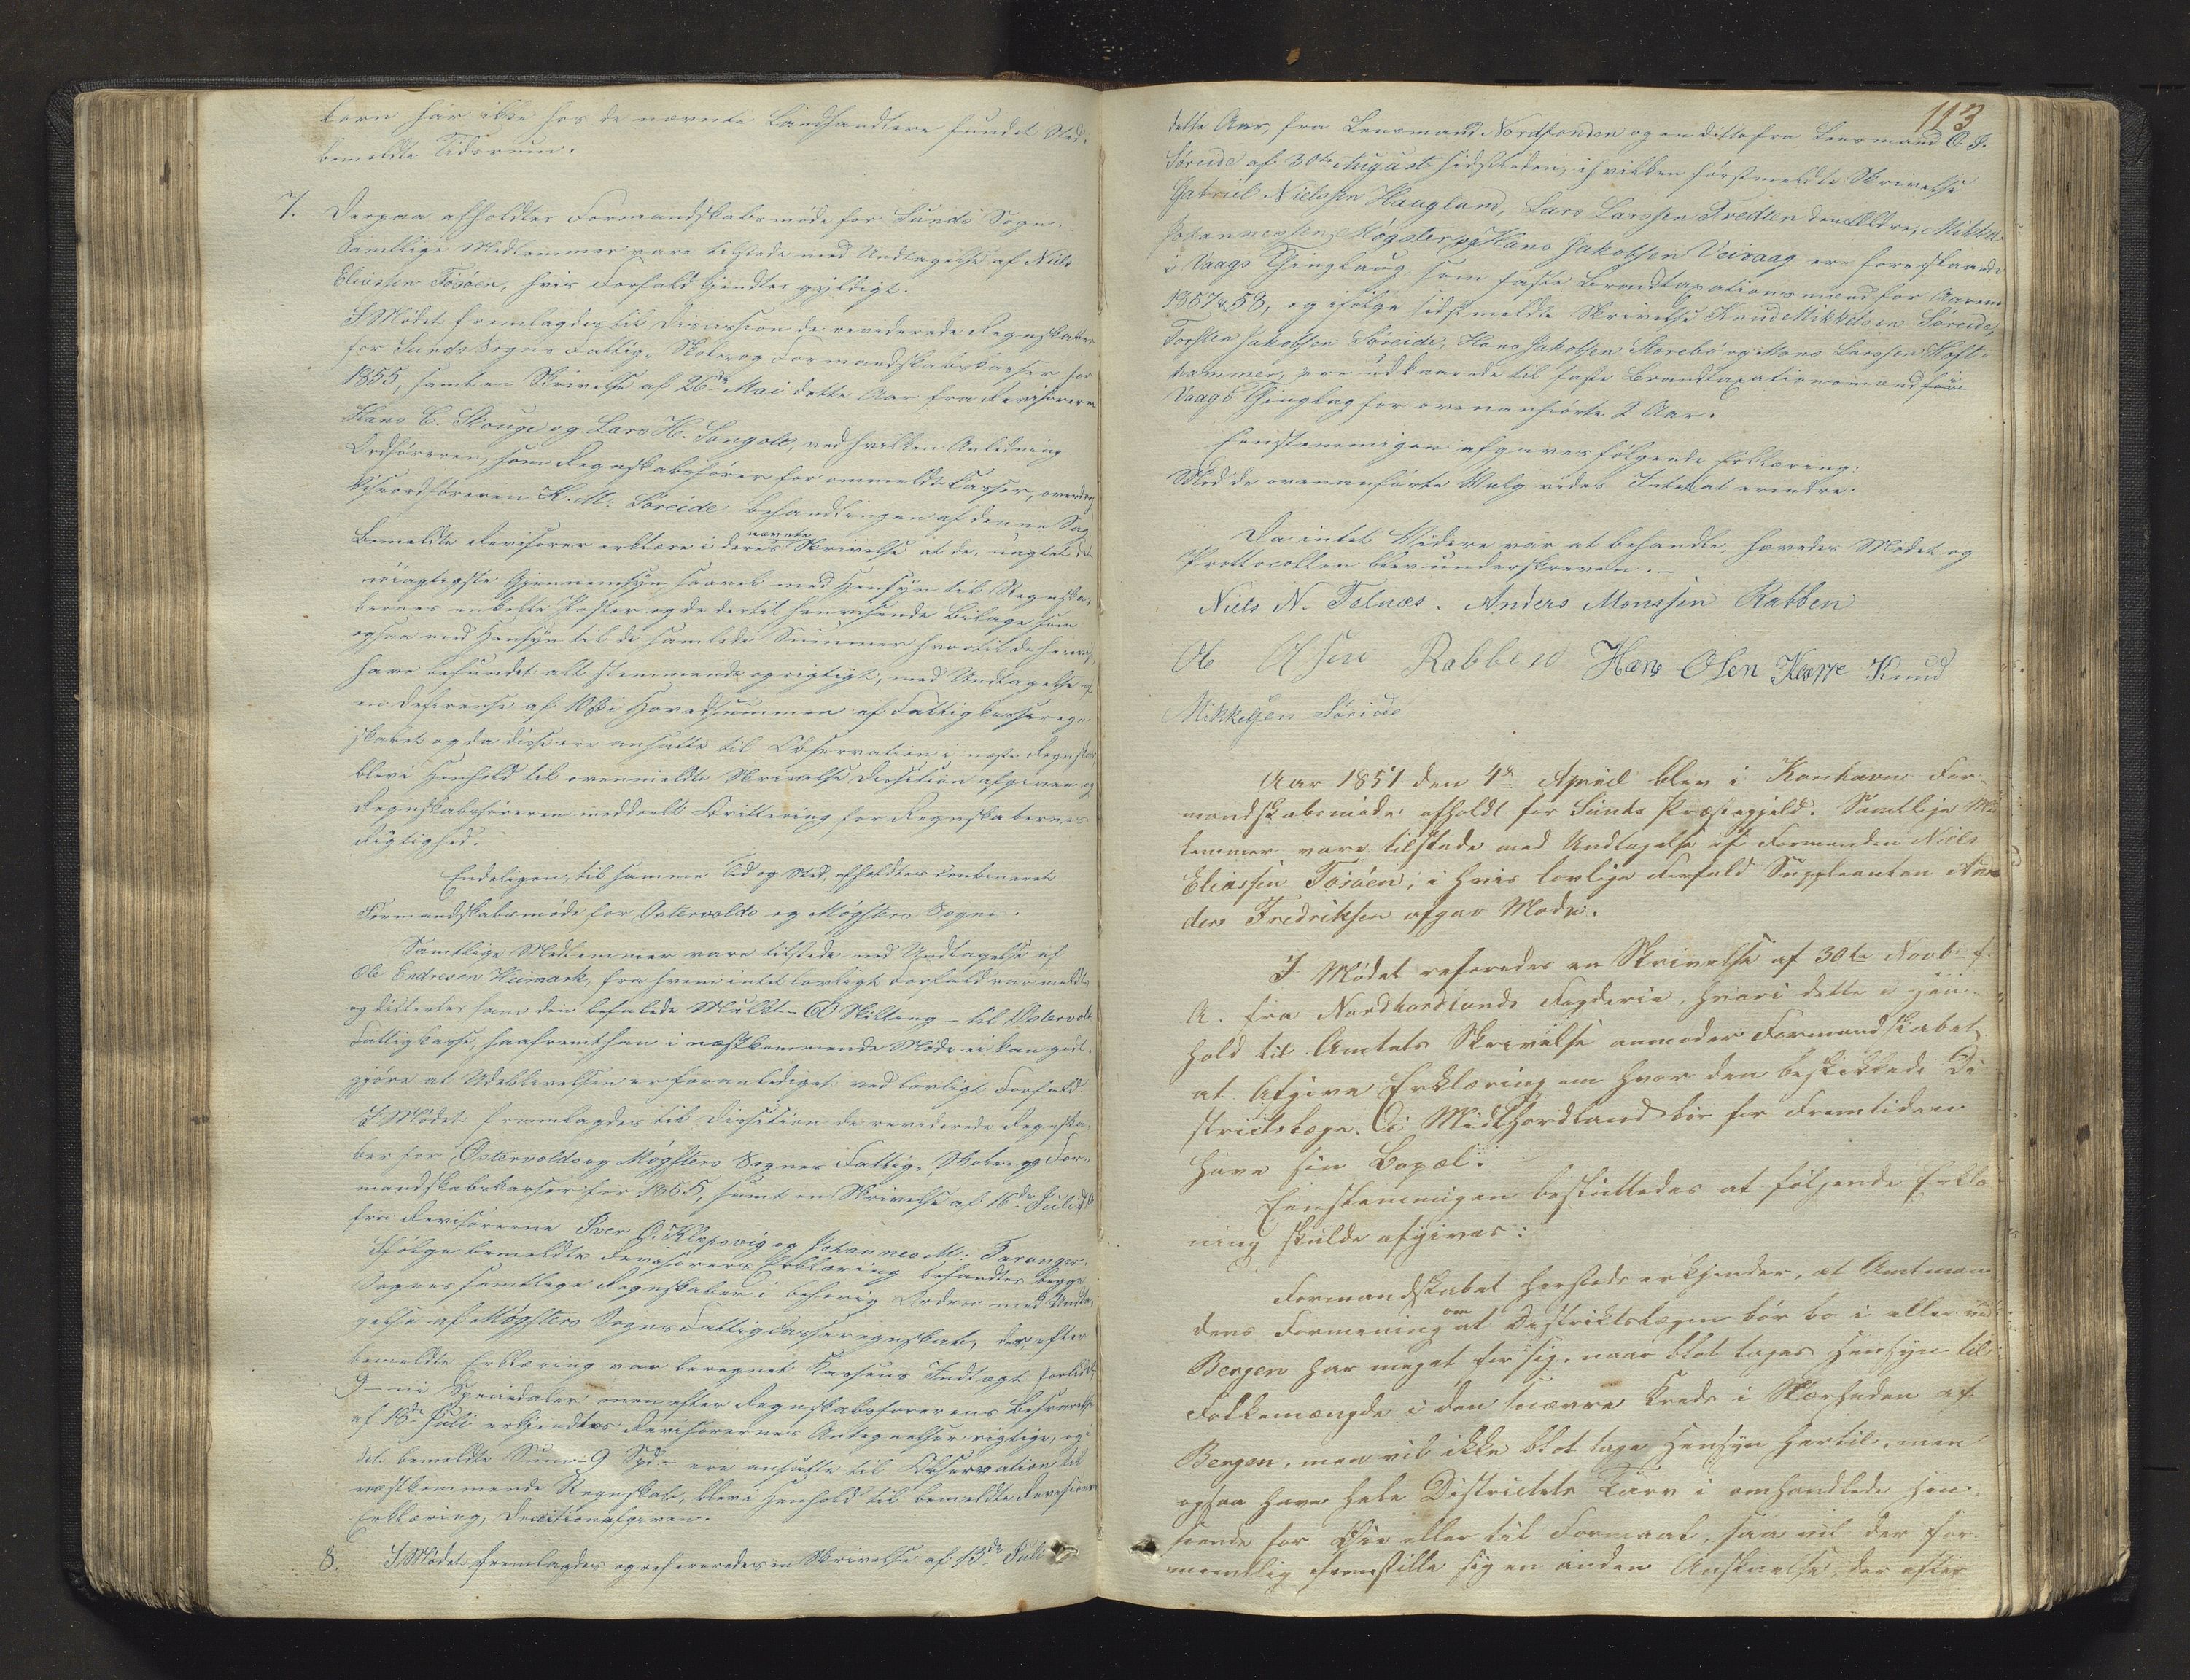 børn har ikke hos de nævnte Landhandlere fundet Sted i
bemeldte Tidsrum.
7. Derpaa afholdtes Formandskabsmøde for Sunds Sogn.
Samtlige Medlemmer vare tilstede med Undtagelse af Niels
Eliassen Tösöen, hvis Forfald kjendtes gyldigt.
I Mödet fremlagdes til Decission de reviderede Regnskaber
for Sunds Sogns Fattig-, Skole- og Formandskabskasser for
1855, samt en Skrivelse af 26de Mai dette Aar fra Revisorerne
Hans C. Skouge og Lars H. Sangolt, ved hvilken Anledning
Ordföreren, som Regnskabsförer for ommeldte Casser, overdrog
Viseordföreren K. M. Söreide Behandlingen af denne Sag
Bemeldte Revisorer erklære i deres nævnte Skrivelse at de, uagtet det
nöiagtigste Gjennemsyn saavel med Hensyn til Regnska-
bernes enkelte Poster og de dertil henvisende Bilage som
ogsaa med Hensyn til de samlede Summer hvortil de henvise,
have befundet alt stemmende og rigtigt, med Undtagelse af
en Deference af 10 ß i Hovedsummen af Fattigkasseregn-
skabet og da disse ere ansatte til Observation i næste Regnskab
blev i Henhold til ovenmeldte Skrivelse Dessition afgiven og
Regnskabsföreren meddeelt Qvittering for Regnskabernes
Rigtighed.
Endeligen, til samme Tid og Sted, afholdtes combineret
Formandskabsmöde for Ostervolds og Møgsters Sogne.
Samtlige Medlemmer vare tilstede med Undtagelse af
Ole Endresen Heimark, fra hvem intet lovligt Forfald var meldt,
og dicteres ham den befalede Mulkt – 60 Skilling – til Östervolds
Fattigkasse, saafremt han i næstkommende Möde ei kan godt-
gjöre at Udeblivelsen er foranlediget ved lovligt Forfald
I Mödet fremlagdes til Dessition de reviderede Regnska-
ber for Östervolds og Møgsters Sognes Fattig-, Skole- og For-
mandskabskasser for 1855, samt en Skrivelse af 16de Juli d. A.
fra Revisorerne Iver O. Klepsvig og Johannes M. Taranger.
Ifölge bemeldte Revisorers Erklæring befandtes begge
Sognes samtlige Regnskaber i behørig Orden med Undta-
gelse af Møgsters Sogns Fattigcasseregnskab, der, efter
bemeldte Erklæring var beregnet Kassens Indtægt forlidet
9 – ni Speciedaler men efter Regnskabsførerens Besvarelse
af 18de Juli erkjendtes Revisorernes Antegnelser rigtige, og
det bemeldte Sum – 9 Spd. – ere ansatte til Observation til
næstkommende Regnskab, blev i Henhold til bemeldte Revisorers
Erklæring, Decition afgiven.
8. I Mødet fremlagdes og refereredes en Skrivelse af 13de Juli
113
dette Aar, fra Lensmand Nordstrønden og en ditto fra Lensmand O. J.
Søreide af 30te August sidstleden, i hvilken førstmeldte Skrivelse
Gabriel Nielssen Haugland, Lars Larssen Tredten den Ældre, Mikkel
Johannessen Møgster og Hans Jakobsen Veivaag er foreslaaede
i Vaags Thinglaug som faste Brandtaxationsmænd for Aarene
1857 & 58, og ifölge sidstmeldte Skrivelse Knud Mikkelsen Søreide,
Torsten Jakobsen Søreide, Hans Jakobsen Storebø og Mons Larssen Hoft-
hammer, ere udkaarede til faste Brandtaxationsmænd for
Vaags Thinglag for ovenanførte 2 Aar.
Eenstemmigen afgaves følgende Erklæring:
Mod de ovenanførte Valg vides Intet at erindre.
Da intet Videre var at behandle, hævedes Mødet og
Prottocollen blev underskreven. –
Niels N. Telnæs. Anders Monssen Rabben
Ole Olsen Rabben Hans Olsen Kaarre Knud
Mikkelsen Söriede
Aar 1857 den 4de April blev i Korshavn For-
mandskabsmøde afholdt for Sunds Præstegjeld. Samtlige Med-
lemmer vare tilstede med Undtagelse af Formanden Niels
Eliassen Tösöen, i hvis lovlige Forfald Suppleanten An-
ders Fredriksen afgav Møde.
I Mödet refereredes en Skrivelse af 30te Novbr f.
A. fra Nordhordlands Fogderie, hvori dette i Hen-
hold til Amtets Skrivelse anmoder Formandskabet
at Afgive Erklæring om hvor den beskikkede Di-
strictslæge i Midthordland bør for Fremtiden
have sin Bopæl.
Eenstemmigen besluttedes at følgende Erklæ-
ring skulde afgives:
Formandskabet hersteds erkjender, at Amtman-
dens Formening om at Distriktslægen bör bo i eller ved
Bergen har meget for sig, naar blot tages Hensyn til
Folkemængde i den snævre Kreds i Nærheden af
Bergen, men vil ikke blot tage Hensyn hertil, men
ogsaa have hele Districtets Tarv i omhandlede Hen-
seende for Öie eller til Formaal, saa vil der for-
mentlig fremstille sig en anden Anskuelse, der efter